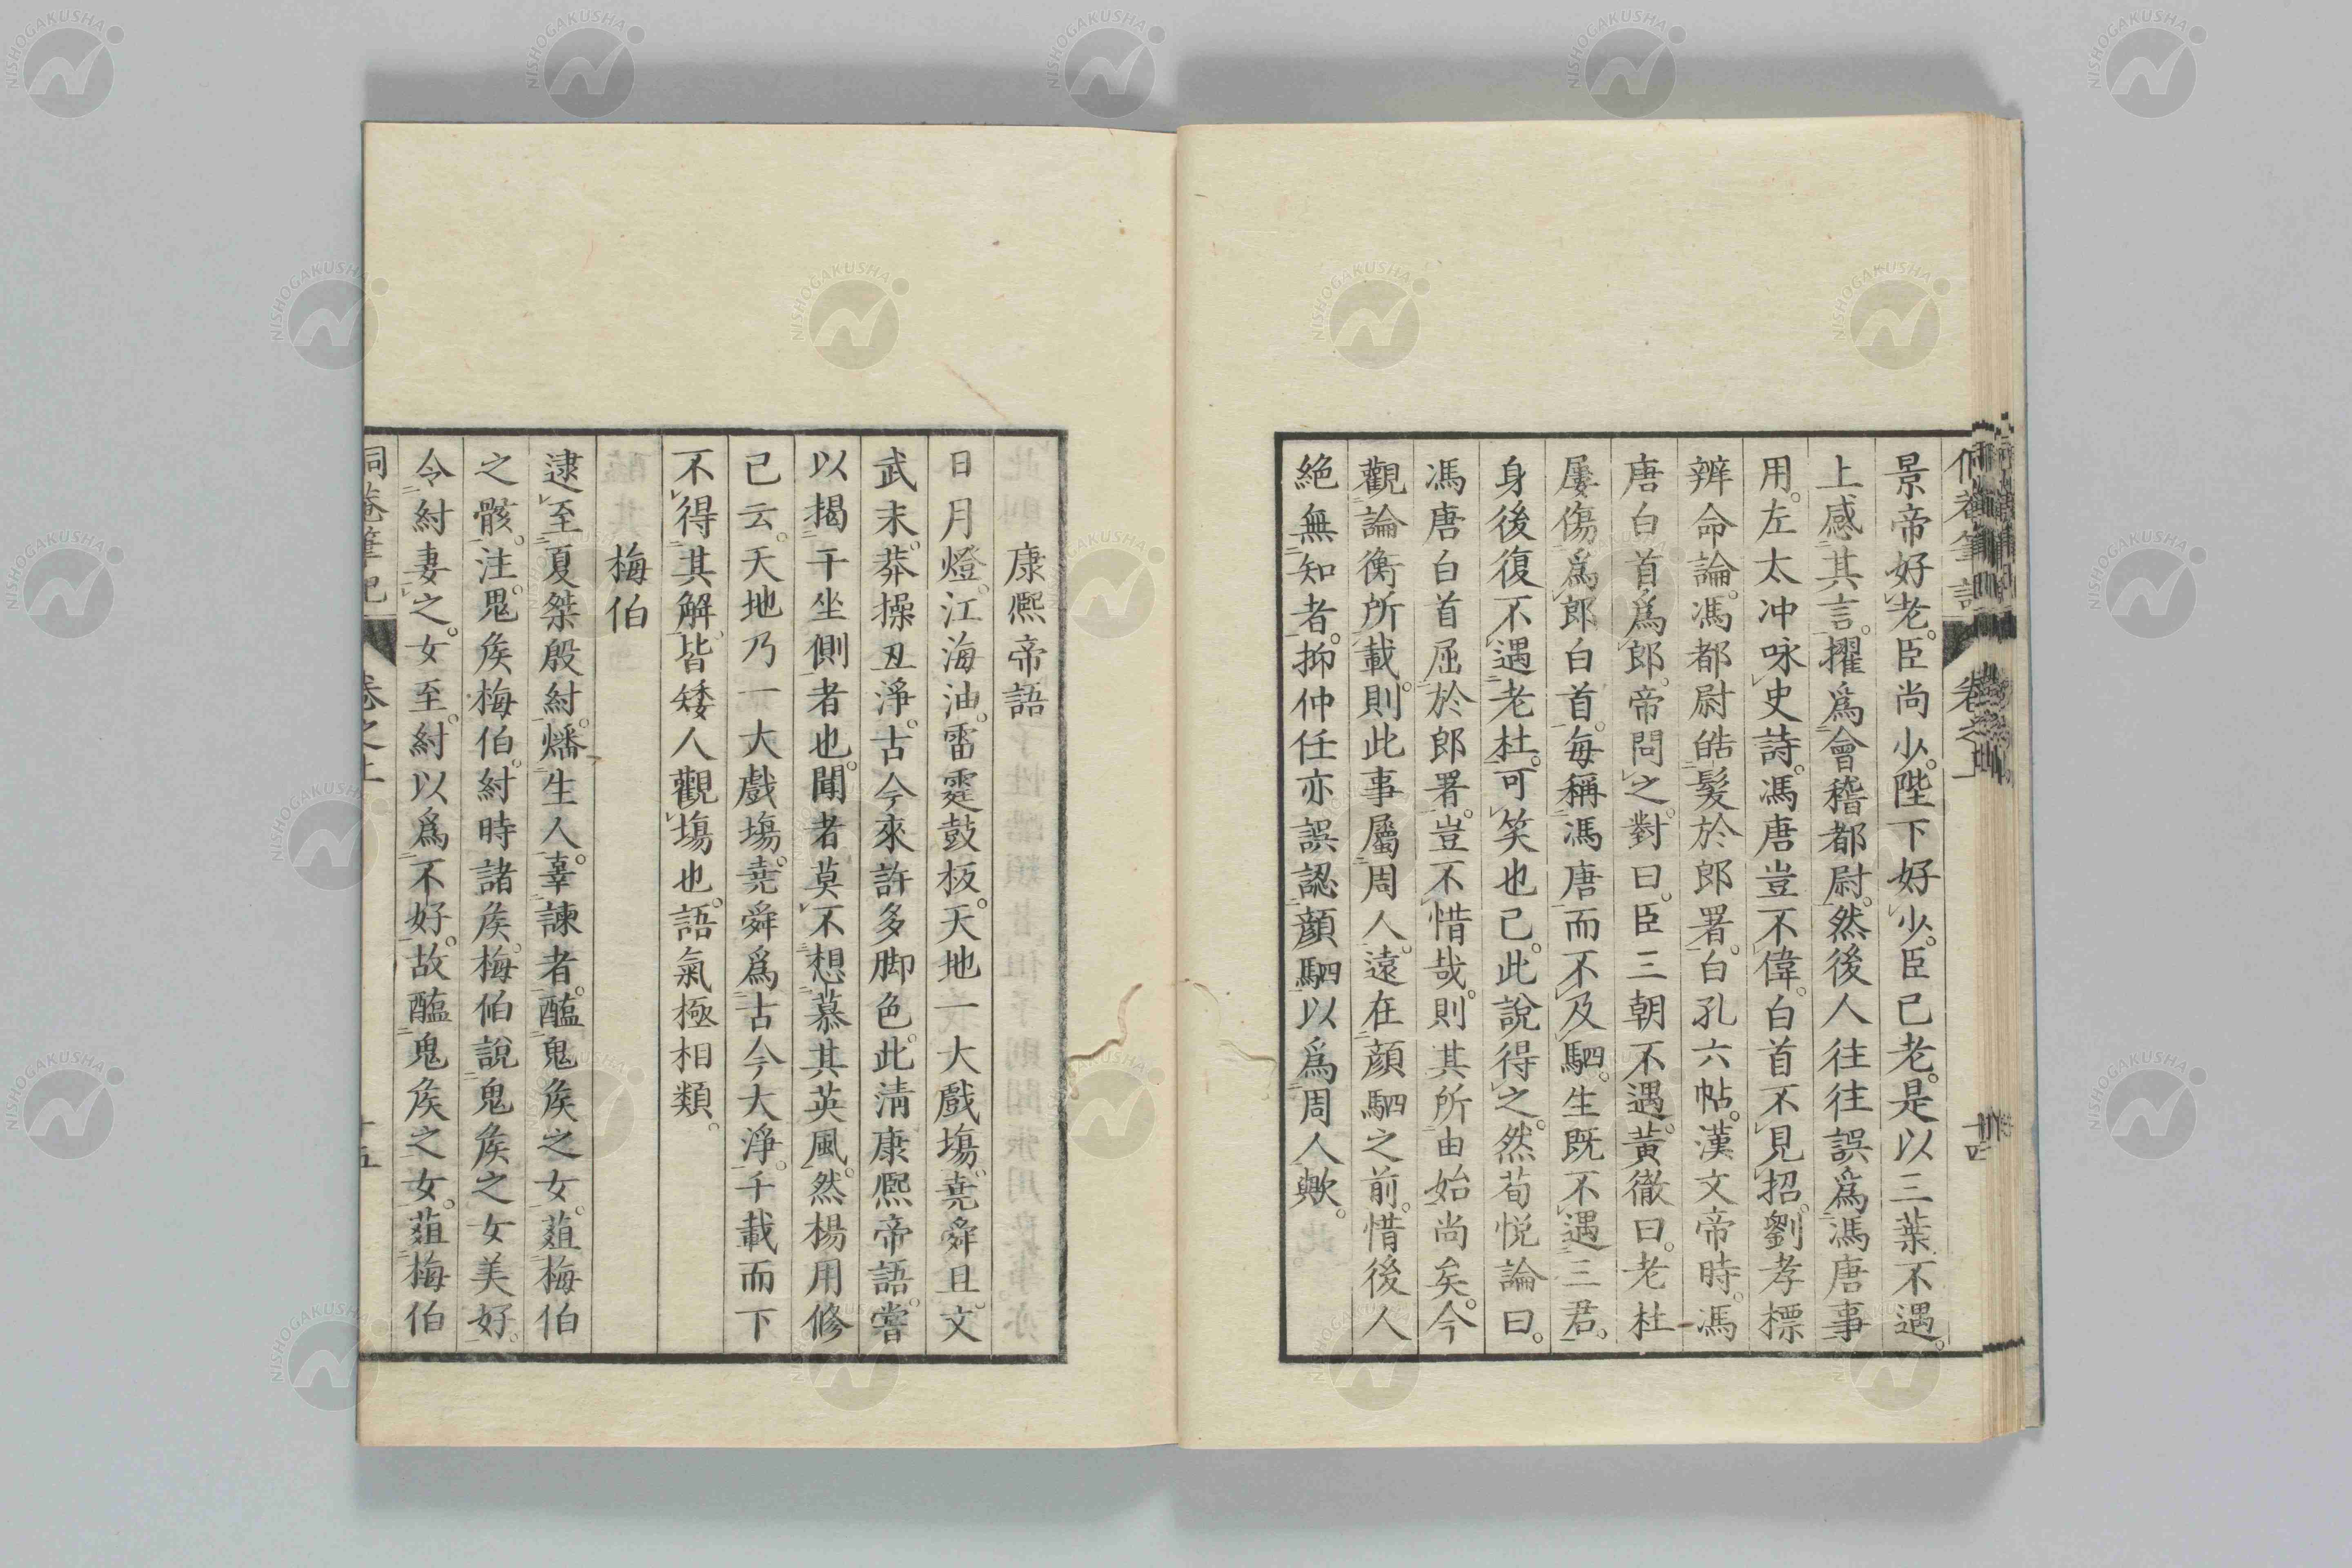 景帝好老。臣尚少。陛下好少。臣已老。是以三葉不遇。
上感其言。擢爲會稽都尉。然後人往往誤爲馮唐事
用。左太冲咏史詩。馮唐豈不偉。白首不見招。劉孝標
辨命論。馮都尉皓髮於郎署。白孔六帖。漢文帝時。馮
唐白首爲郎。帝問之。對曰。臣三朝不遇。黃徹曰。老杜
屢傷爲郎白首。每稱馮唐而不及駟。生既不遇三君。
身後復不遇老杜。可笑也已。此說得之。然荀悦論曰。
馮唐白首屈於郎署。豈不惜哉。則其所由始尚矣。今
觀論衡所載。則此事屬周人。遠在顏駟之前。惜後人
絕無知者。抑仲任亦誤認顏駟以爲周人歟。
康熙帝語
日月燈。江海油。雷霆鼓板。天地一大戲塲。堯舜旦。文
武末。莽操丑淨。古今來許多脚色。此淸康熙帝語。嘗
以揭于坐側者也。聞者莫不想慕其英風。然楊用修
已云。天地乃一大戲塲。堯舜爲古今大淨。千載而下
不得其解。皆矮人觀塲也。語氣極相類。
梅伯
逮至夏桀殷紂。燔生人。辜諫者。醢鬼矦之女。葅梅伯
之骸。注。鬼矦梅伯。紂時諸矦。梅伯說鬼矦之女美好。
令紂妻之。女至。紂以爲不好。故醢鬼矦之女。葅梅伯
侗菴筆記 卷之上 十五